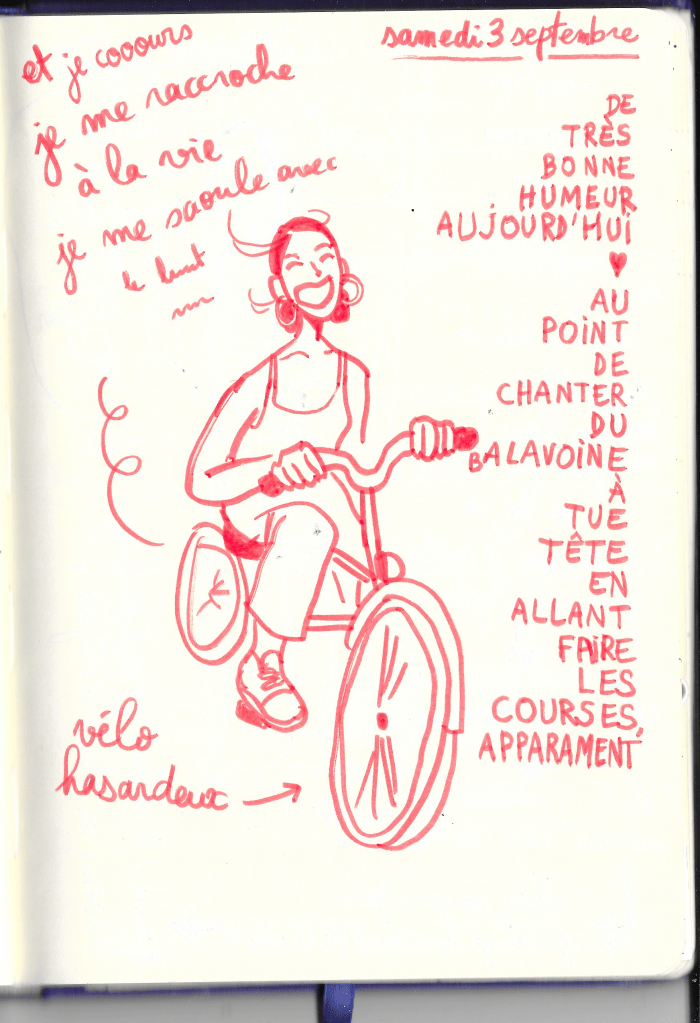 samedi 3 septembre
et je cooours
je me raccroche
à la vie
je me saoule avec
le bruit
DE
TRÈS
BONNE
HUMEUR
AUJOURD'HUI
♥
AU
POINT
DE
CHANTER
DU
BALAVOINE
À
TUE
TÊTE
EN
ALLANT
FAIRE
LES
COURSES,
APPARAMENT
vélo
hasardeux →